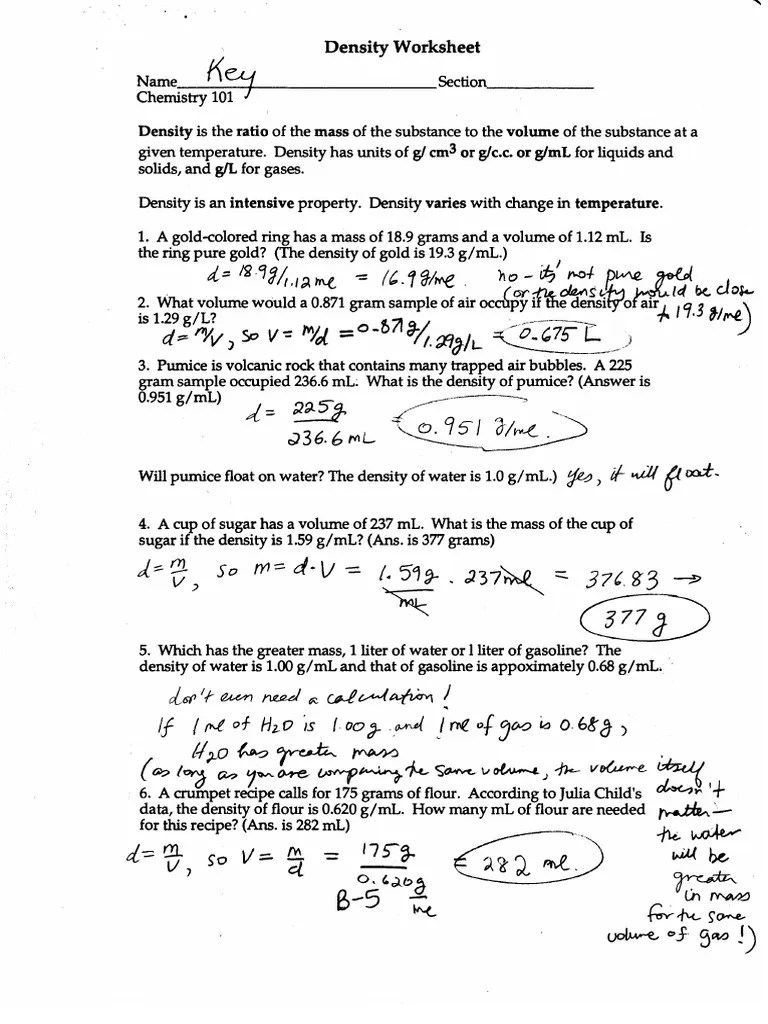 Density Worksheet
Name Key Section
Chemistry 101
Density is the ratio of the mass of the substance to the volume of the substance at a
given temperature. Density has units of g/ cm3 or g/c.c. or g/mL for liquids and
solids, and g/L for gases.
Density is an intensive property. Density varies with change in temperature.
1. A gold-colored ring has a mass of 18.9 grams and a volume of 1.12 mL. Is
the ring pure gold? (The density of gold is 19.3 g/mL.)
d= 18.9g/1.12 mL = 16.9 g/mL no - its' not pure gold
(or the density would be close
2. What volume would a 0.871 gram sample of air occupy if the density of air
to 19.3 g/mL)
is 1.29 g/L?
d= m/V, so V= m/d = 0.871g/1.29g/L = 0.675 L
3. Pumice is volcanic rock that contains many trapped air bubbles. A 225
gram sample occupied 236.6 mL. What is the density of pumice? (Answer is
0.951 g/mL)
d= 225g
236.6 mL
= 0.951 g/mL.
Will pumice float on water? The density of water is 1.0 g/mL.) Yes, it will float.
4. A cup of sugar has a volume of 237 mL. What is the mass of the cup of
sugar if the density is 1.59 g/mL? (Ans. is 377 grams)
d= m/V, so m= d·V = 1.59g/mL . 237mL = 376.83 →
377 g
5. Which has the greater mass, 1 liter of water or l liter of gasoline? The
density of water is 1.00 g/mL and that of gasoline is appoximately 0.68 g/mL.
don't even need a calculation!
If 1 mL of H2O is 1.00g and 1 mL of gas is 0.68g,
H2O has greater mass
(as long as you are comparing the same volume, the volume itself
doesn't
6. A crumpet recipe calls for 175 grams of flour. According to Julia Child's
data, the density of flour is 0.620 g/mL. How many mL of flour are needed
for this recipe? (Ans. is 282 mL)
matter—
the water
will be
greater
in mass
for the same
volume of gas!)
d= m/V, so V= m/d = 175g
0.620g
mL
= 282 mL.
B-5